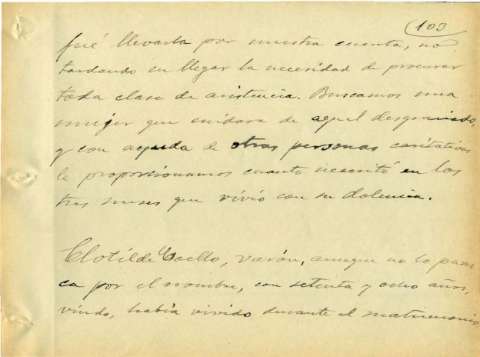 103
fué llevarla por nuestra cuenta, no
tardando en llegar la necesidad de procurar
toda clase de asistencia. Buscamos una
mujer que cuidara de aquel desgraciado,
y con ayuda de otras personas caritativas
le proporcionamos cuanto necesitó en los
tres meses que vivió con su dolencia.
Clotilde Coello, varón, aunque no lo parez
ca por el nombre, con setenta y ocho años,
viudo, había vivido durante el matrimonio